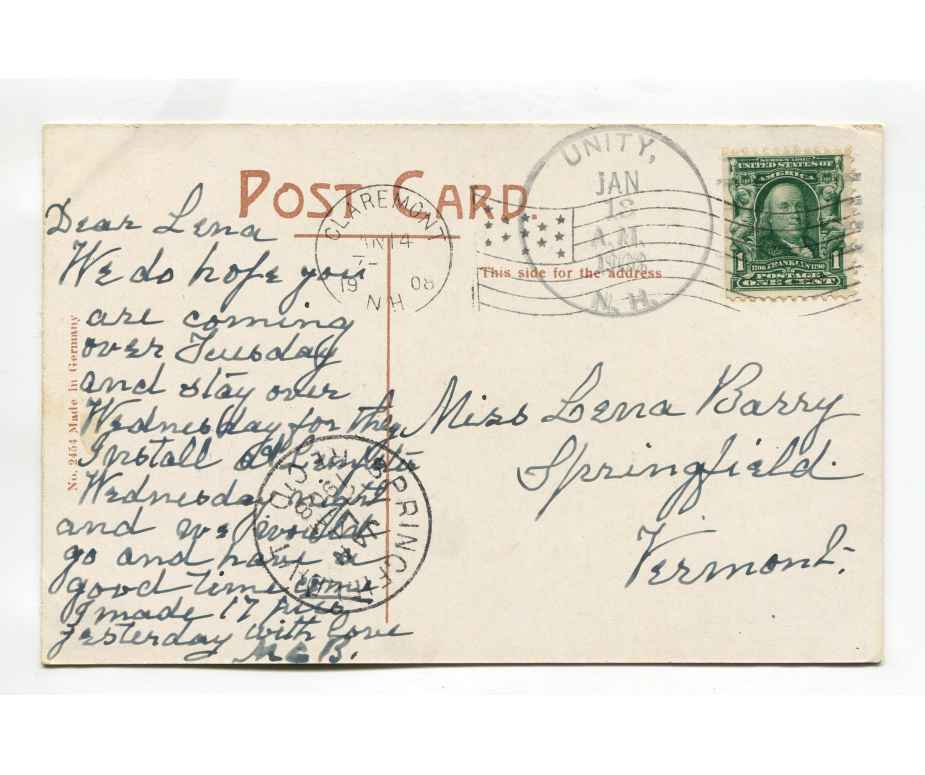 POST CARD.
This side for the address
No. 2454 Made in Germany
UNITY,
JAN
A.M.
N.H.
CLAREMONT
14
19 08
N.H.
SERIES 1902
UNITED STATES OF
AMERICA
1 1706 FRANKLIN 1790 1
POSTAGE
ONE CENT
Dear Lena
We do hope you
are coming
over Tuesday
and stay over
Wednesday for the
Install at
Wednesday night
and we would
go and have a
good time
I made 17 pies
yesterday with love
M C B.
Miss Lena Barry
Springfield.
Vermont.
REC'D.